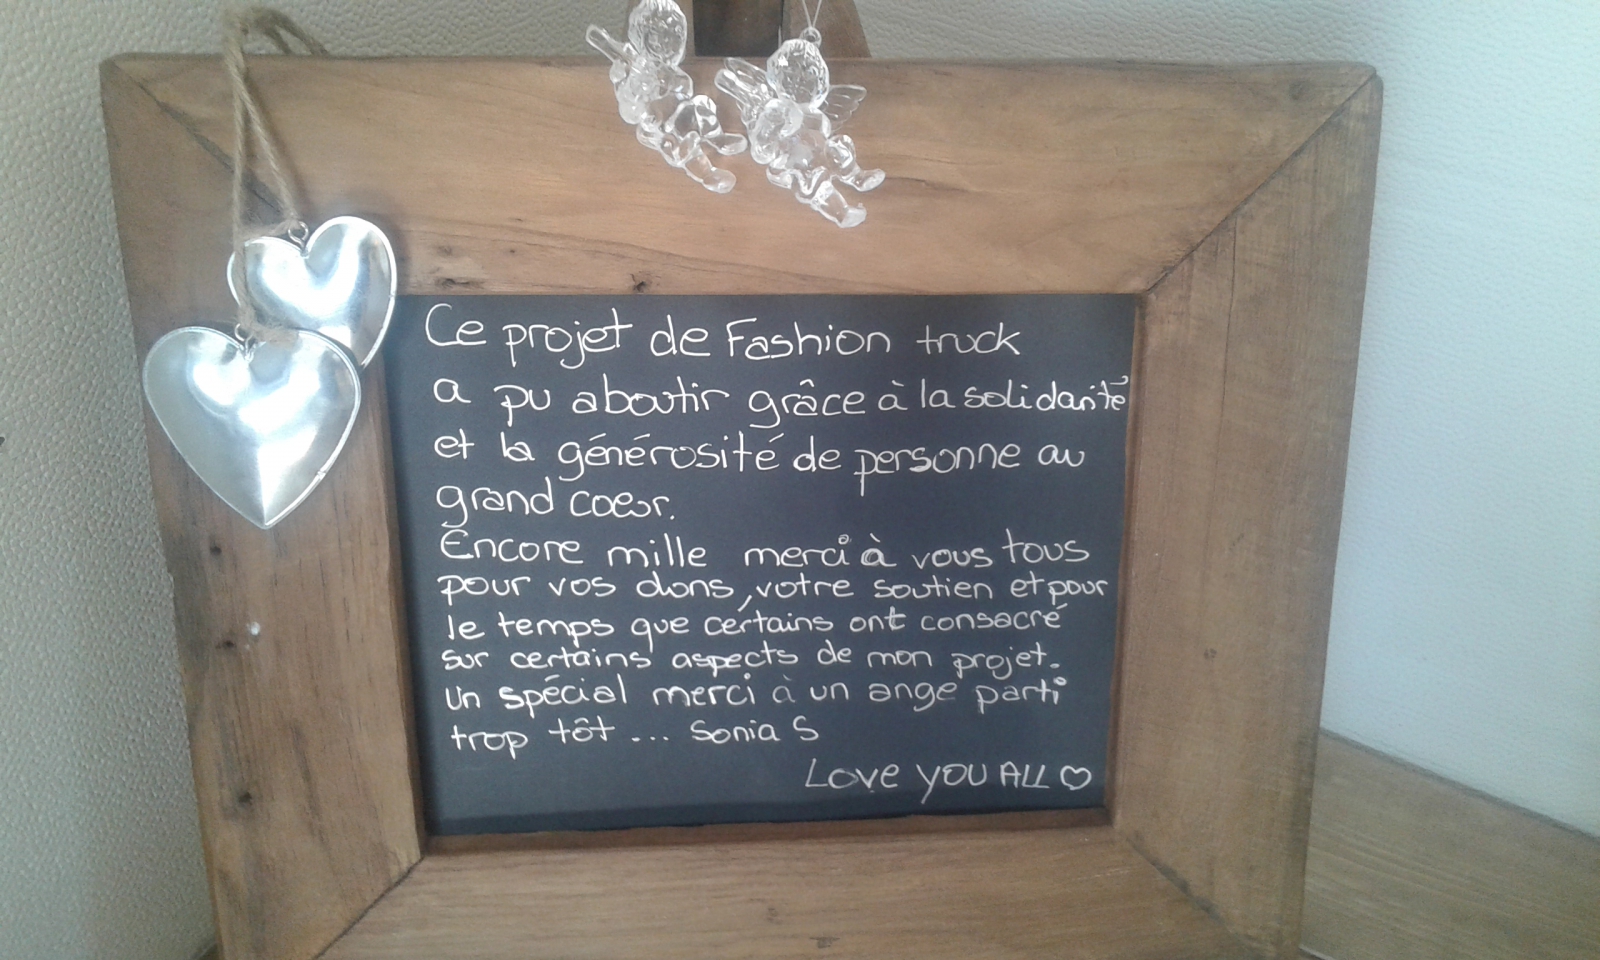 Ce projet de Fashion truck
a pu aboutir grâce à la solidarité
et la générosité de personne au
grand coeur.
Encore mille merci à vous tous
pour vos dons, votre soutien et pour
le temps que certains ont consacré
sur certains aspects de mon projet.
Un spécial merci à un ange parti
trop tôt ... Sonia S
Love you ALL ♡